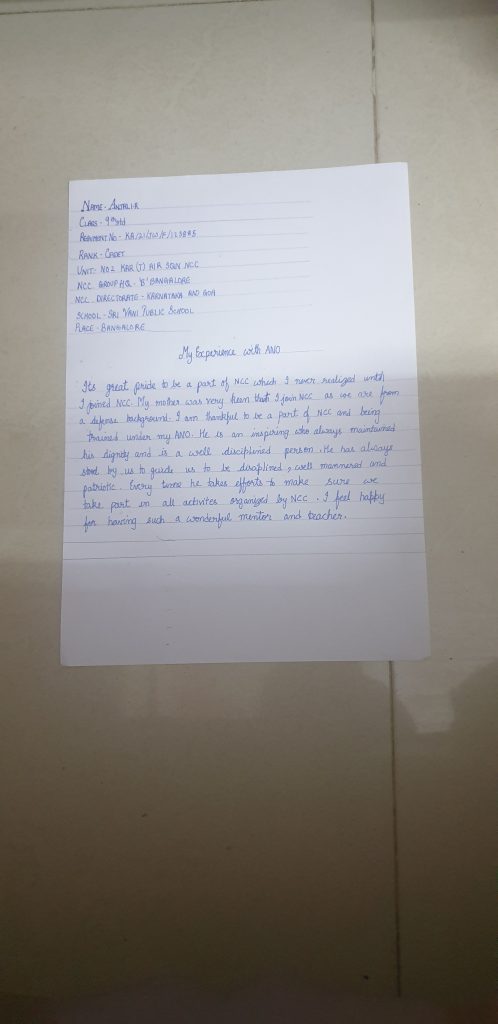 NAME - ANJALI.R
CLASS - 9th std
REGIMENT No - KA/21/JW/F/
RANK - CADET
UNIT: NO 2 KAR (T) AIR SQN NCC
NCC GROUP HQ - 'B' BANGALORE
NCC DIRECTORATE - KARNATAKA AND GOA
SCHOOL - SRI VANI PUBLIC SCHOOL
PLACE - BANGALORE
My Experience with ANO
Its great pride to be a part of NCC which I never realized until
I joined NCC. My mother was very keen that I join NCC as we are from
a defense background. I am thankful to be a part of NCC and being
trained under my ANO. He is an inspiring who always maintained
his dignity and is a well disciplined person. He has always
stood by us to guide us to be disciplined, well mannered and
patriotic. Every time he takes efforts to make sure we
take part in all activites organized by NCC. I feel happy
for having such a wonderful mentor and teacher.